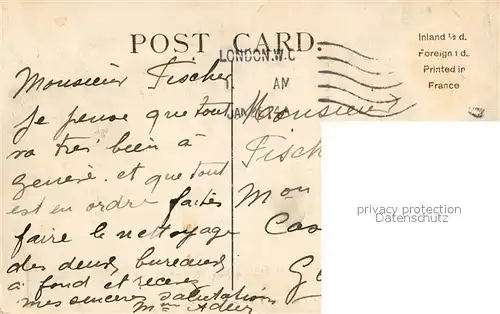 POST CARD.
Inland ½ d.
Foreign 1 d.
Printed in
France
LONDON.W.C
1. AM
JAN
Monsieur Fischer
Je pense que tout
va très bien à
genève. et que tout
est en ordre faites
faire le nettoyage
des deux bureaux
à fond et recevez
mes sincères salutations
Mme Adler
Monsieur
Fisch
Mon
Cas
G
privacy protection
Datenschutz